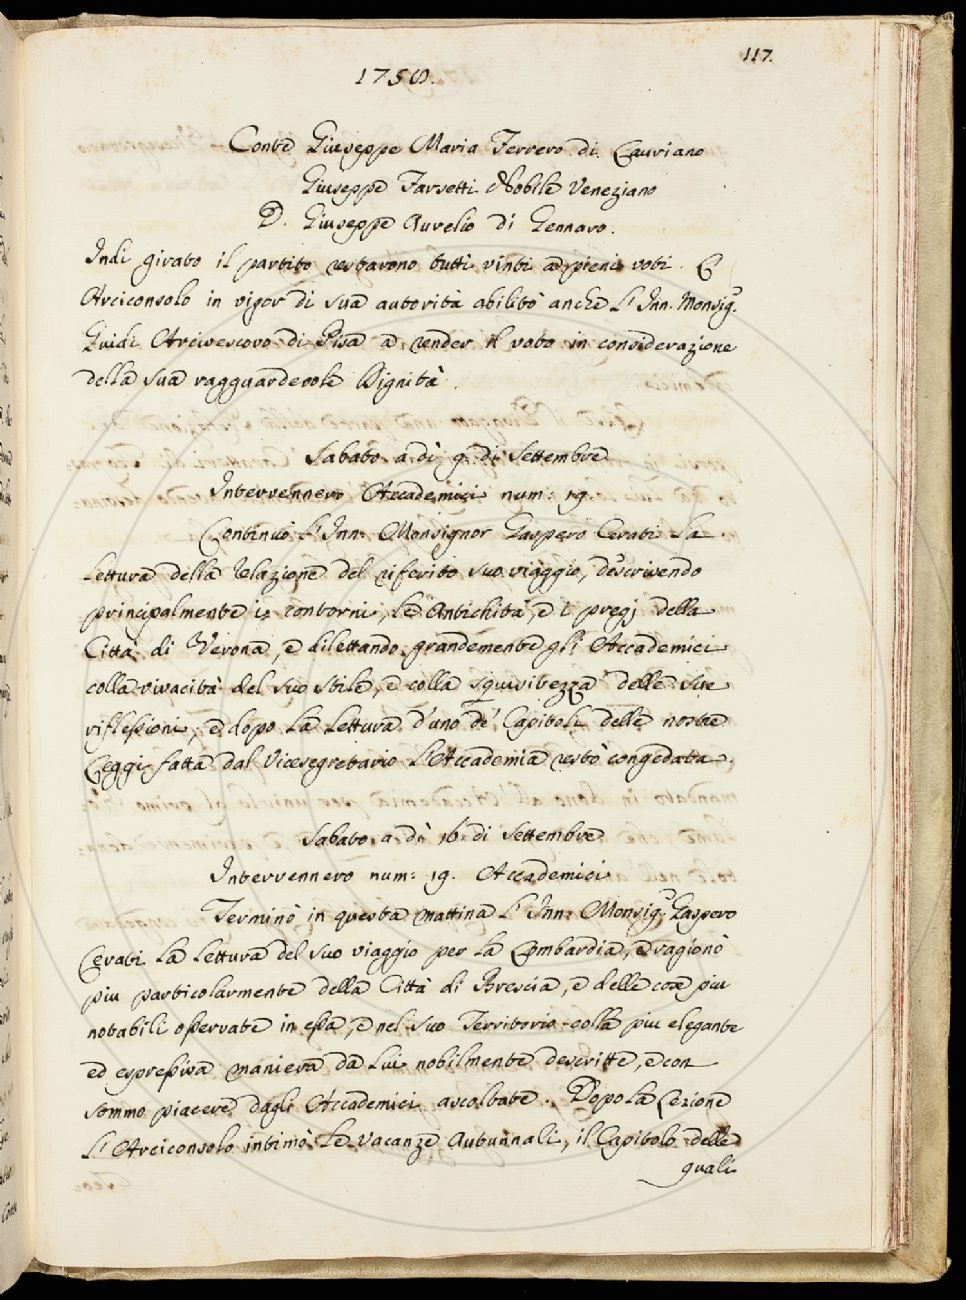 117.
1758.
Conte Giuseppe Maria Ferrero di Lauriano
Giuseppe Farsetti Nobile Veneziano
D. Giuseppe Aurelio di Gennaro.
Indi girato il partito restarono tutti vinti a pieni voti. E
Arciconsolo in vigor di sua autorità abilitò anche l'Inn. Monsig.r
Guidi Arcivescovo di Pisa a render il voto in considerazione
della sua ragguardevole Dignità.
Sabato a dì 9. di Settembre
Intervennero Accademici num: 19.
Continuò l'Inn: Monsignor Gaspero Cerati la
lettura della relazione del riferito suo viaggio, descrivendo
principalmente i contorni, le Antichità, e i pregj della
Città di Verona, e dilettando grandemente gli Accademici
colla vivacità del suo stile, e colla squisitezza delle sue
riflessioni, e dopo la lettura d'uno de' Capitoli delle nostre
Leggi fatta dal Vicesegretario l'Accademia restò congedata.
Sabato a dì 16. di Settembre
Intervennero num: 19. Accademici
Terminò in questa mattina l'Inn: Monsig.r Gaspero
Cerati la lettura del suo viaggio per la Lombardia, e ragionò
piu particolarmente della Città di Brescia, e delle cose piu
notabili osservate in essa, e nel suo Territorio colla piu elegante
ed espressiva maniera da lui nobilmente descritte, e con
sommo piacere dagli Accademici ascoltate. Dopo la Lezione
l'Arciconsolo intimò le vacanze Autunnali, il Capitolo delle
quali